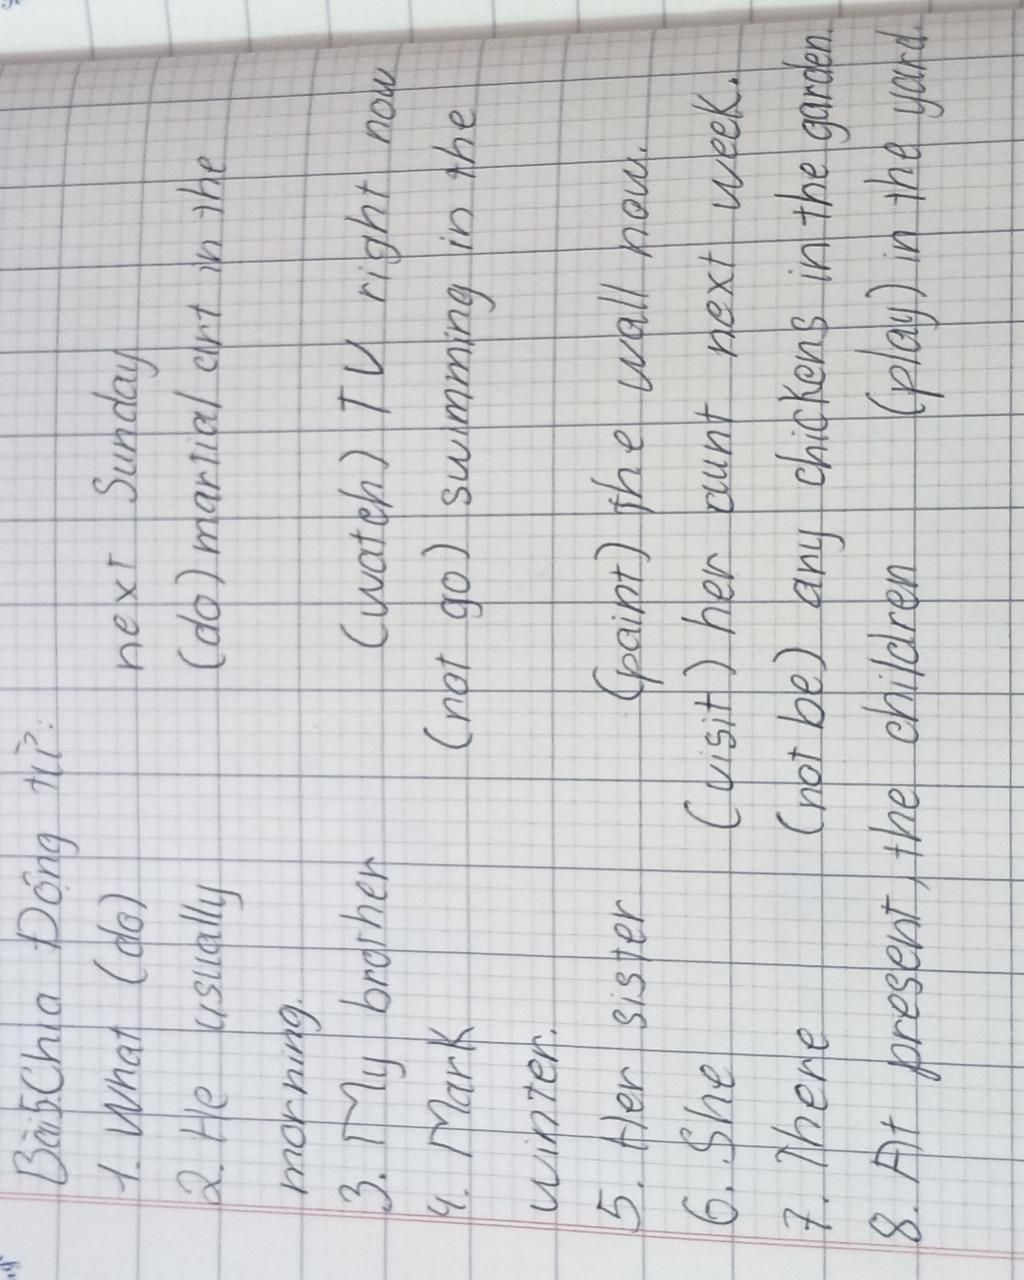 Bài 5 Chia Động từ:
1. What (do) next Sunday
2. He usually (do) martial art in the
morning.
3. My brother (watch) TV right now
4. Mark (not go) swimming in the
winter.
5. Her sister (paint) the wall now.
6. She (visit) her aunt next week.
7. There (not be) any chickens in the garden.
8. At present, the children (play) in the yard.